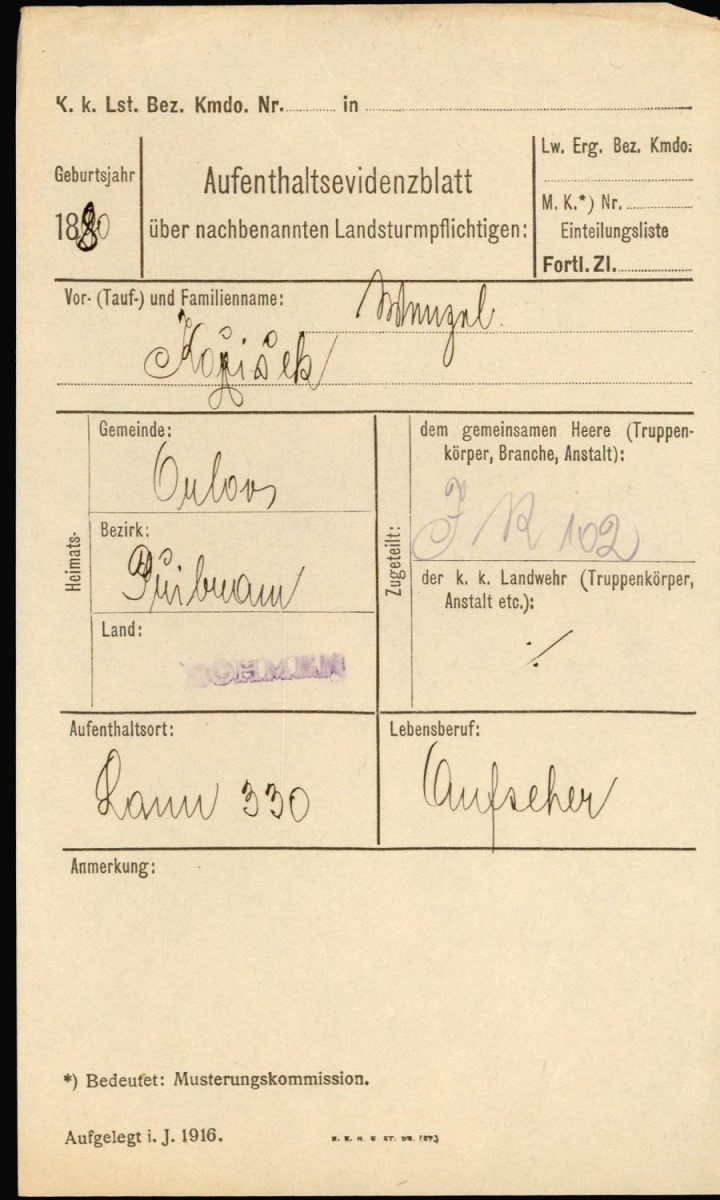 K. k. Lst. Bez. Kmdo. Nr. in
Geburtsjahr
1880
Aufenthaltsevidenzblatt
über nachbenannten Landsturmpflichtigen:
Lw. Erg. Bez. Kmdo:
M. K.*) Nr.
Einteilungsliste
Fortl. Zl.
Vor- (Tauf-) und Familienname:
Wenzel
Heimats-
Gemeinde:
Bezirk:
Land:
BÖHMEN
Zugeteilt:
dem gemeinsamen Heere (Truppen-
körper, Branche, Anstalt):
J R 102
der k. k. Landwehr (Truppenkörper,
Anstalt etc.):
./.
Aufenthaltsort:
Laun 330
Lebensberuf:
Aufseher
Anmerkung:
*) Bedeutet: Musterungskommission.
Aufgelegt i. J. 1916.